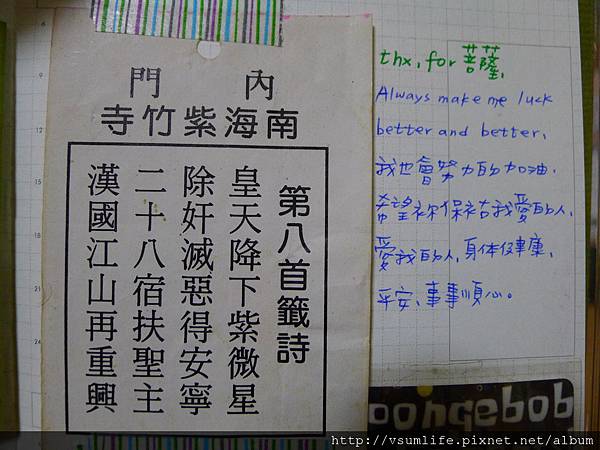 內門
南海紫竹寺
第八首籤詩
皇天降下紫微星
除奸滅惡得安寧
二十八宿扶聖主
漢國江山再重興
thx, for 菩薩,
Always make me luck
better and better,
我也會努力的加油.
希望祢保祐我愛的人,
愛我的人,身体健康,
平安、事事順心。
oongebob
http://vsumlife.pixnet.net/album